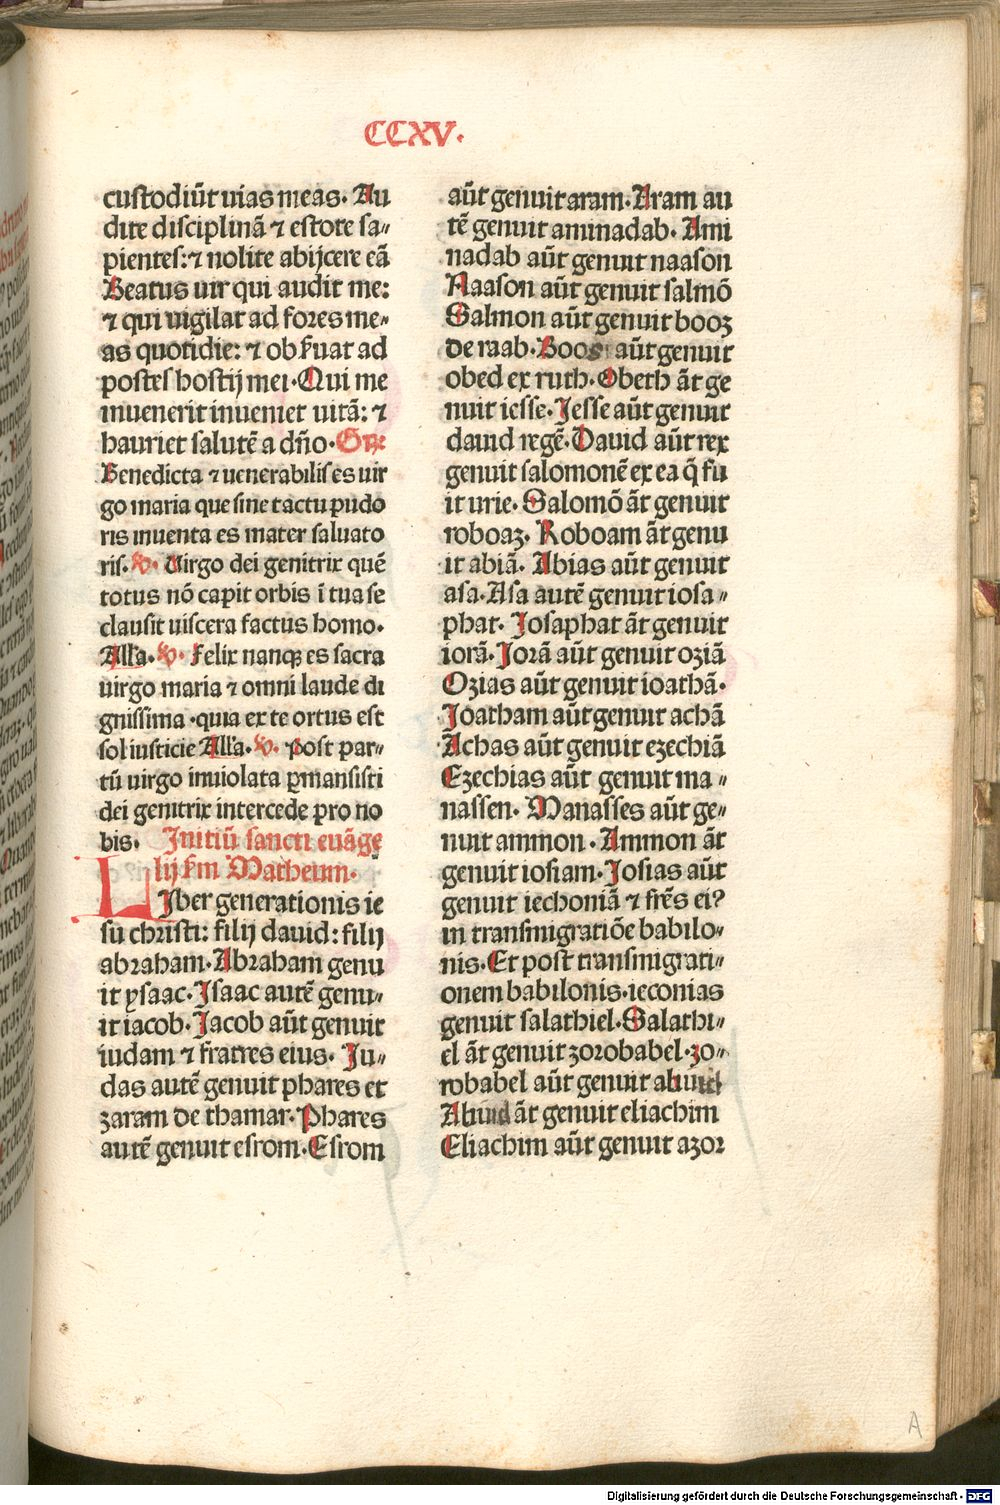 CCXV.
custodiūt uias meas. Au
dite disciplinā ⁊ estote sa⸗
pientes:⁊ nolite abijcere eā
Beatus uir qui audit me:
⁊ qui uigilat ad fores me⸗
as quotidie: ⁊ obẜuat ad
postes hostij mei. Qui me
inuenerit inueniet uitā: ⁊
hauriet salutē a dño. Gr̄
Benedicta ⁊ uenerabilis es uir
go maria que sine tactu pudo
ris inuenta es mater saluato
ris. ℣. Uirgo dei genitrix quē
totus nō capit orbis ī tua se
clausit uiscera factus homo.
All'a. ℣. Felix nanqꝫ es sacra
uirgo maria ⁊ omni laude di
gnissima .quia ex te ortus est
sol iusticie All'a. ℣. Post par⸗
tū uirgo inuiolata ꝑmansisti
dei genitrix intercede pro no
bis. Initiū sancti euāge
lij ẜm Matheum.
LIber generationis ie
su christi: filij dauid: filij
abraham. Abraham genu
it ysaac. Isaac autē genu⸗
it iacob. Jacob aūt genuit
iudam ⁊ fratres eius. Ju⸗
das autē genuit phares et
zaram de thamar. Phares
autē genuit esrom. Esrom
aūt genuit aram. Aram au
tē genuit aminadab. Ami
nadab aūt genuit naason
Naason aūt genuit salmō
Salmon aūt genuit booz
de raab. Boos aūt genuit
obed ex ruth. Obeth āt ge
nuit iesse. Jesse aūt genuit
dauid regē. Dauid aūt rex
genuit salomonē ex ea q̄ fu
it urie. Salomō āt genuit
roboaz. Roboam āt genu
it abiā. Abias aūt genuit
asa. Asa autē genuit iosa⸗
phat. Josaphat āt genuit
iorā. Jorā aūt genuit oziā
Ozias aūt genuit ioathā.
Joatham aūt genuit achā
Achas aūt genuit ezechiā
Ezechias aūt genuit ma⸗
nassen. Manasses aūt ge⸗
nuit ammon. Ammon āt
genuit iosiam. Josias aūt
genuit iechoniā ⁊ fr̄es ei?
in transmigratiōe babilo⸗
nis. Et post transmigrati⸗
onem babilonis. ieconias
genuit salathiel. Salathi⸗
el āt genuit zorobabel. zo⸗
robabel aūt genuit abiud
Abiud āt genuit eliachim
Eliachim aūt genuit azor
A
Digitalisierung gefördert durch die Deutsche Forschungsgemeinschaft - DFG